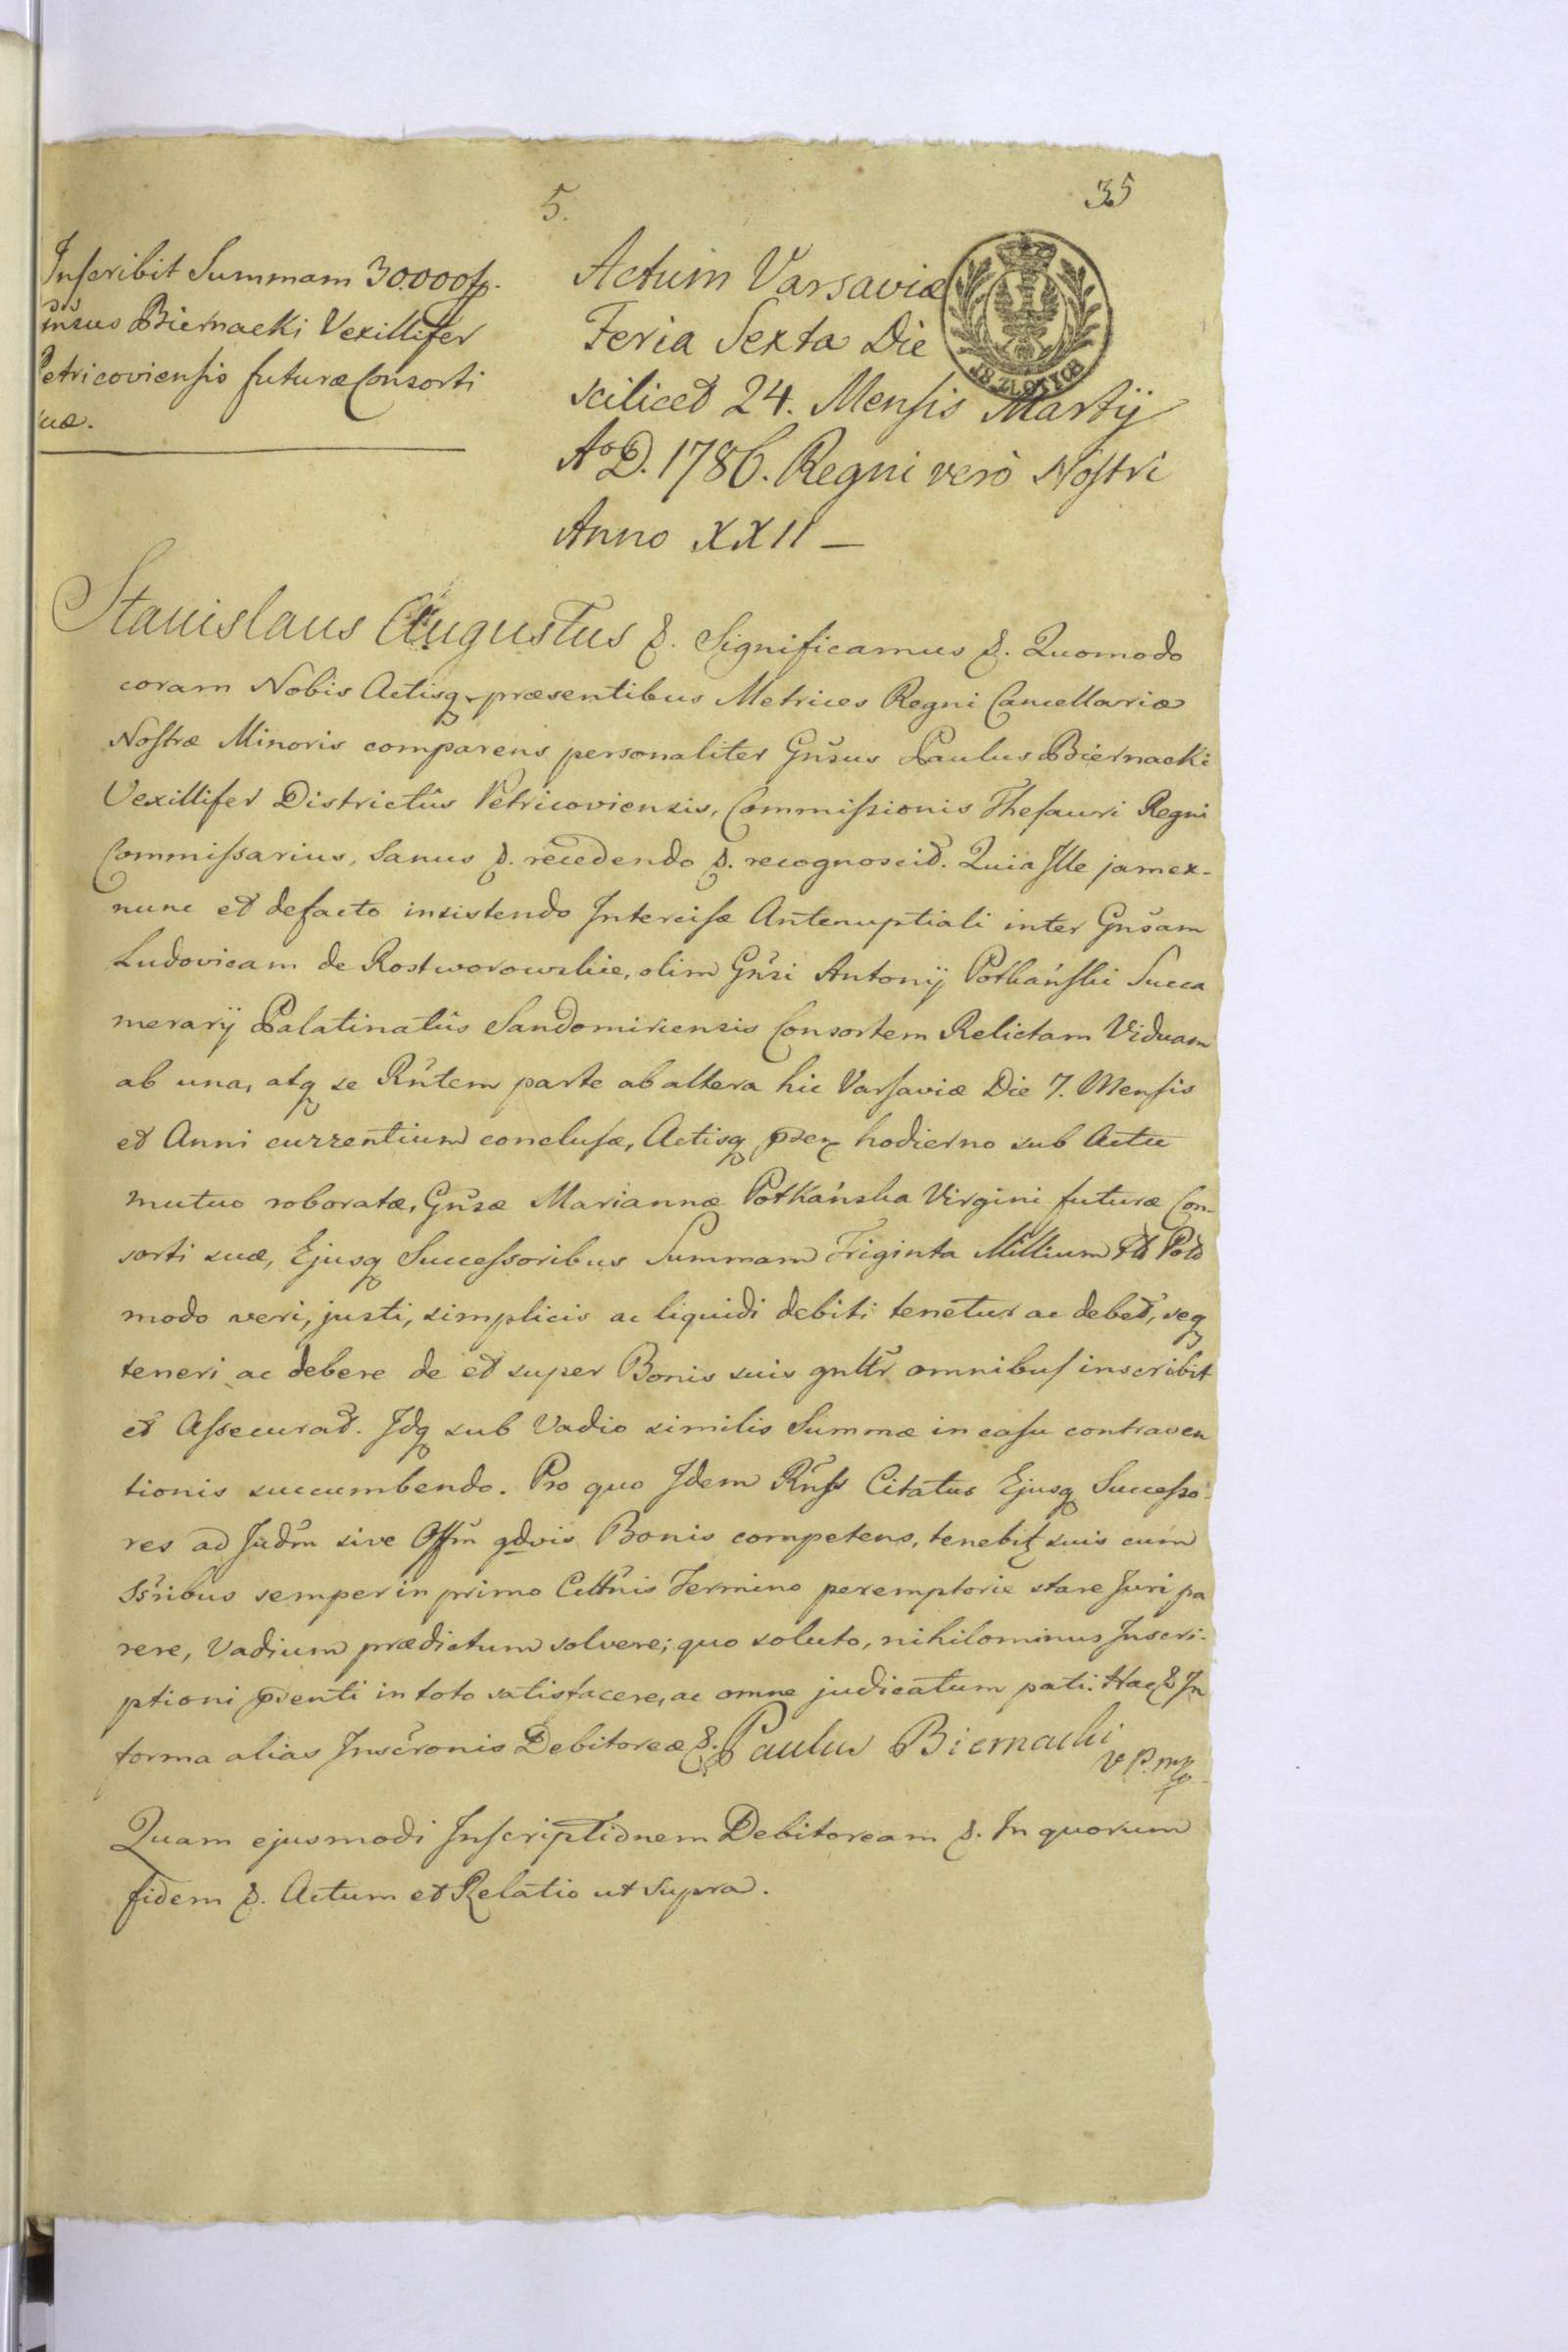 5.
35
Inscribit Summam 30.000 fp.
Gnsus Biernacki Vexillifer
Petricoviensis futuræ Consorti
suæ.
Actum Varsaviæ
Feria Sexta Die
scilicet 24. Mensis Martij
AoD. 1786. Regni verò Nostri
Anno XXII —
Stanislaus Augustus &. Significamus &. Quomodo
coram Nobis Actisq. præsentibus Metrices Regni Cancellariæ
Nostræ Minoris comparens personaliter Gnsus Paulus Biernacki
Vexillifer Districtûs Petricoviensis, Commissionis Thesauri Regni
Commissarius, Sanus &. recedendo &. recognoscit. Quia Ille jam ex-
nunc et defacto insistendo Intercisæ Antenuptiali inter Gnsam
Ludovicam de Rostworowskie, olim Gnsi Antonij Potkański Succa
merarij Palatinatûs Sandomiriensis Consortem Relictam Viduam
ab una, atq se Rntem parte ab altera hic Varsaviæ Die 7. Mensis
et Anni currentium conclusæ, Actisq hodierno sub Actu
mutuo roboratæ, Gnsæ Mariannæ Potkańska Virgini futuræ Con-
sorti suæ, Ejusq Successoribus Summam Triginta Millium Fl Pol
modo veri, justi, simplicis ac liquidi debiti tenetur ac debet, seq
teneri ac debere de et super Bonis suis gnltr omnibus inscribit
et Assecurat. Idq sub Vadio similis Summæ in casu contraven
tionis succumbendo. Pro quo Idem Rnss Citatus Ejusq Successo-
res ad Judm sive Offm qdvis Bonis competens, tenebit suis cum
Ssribus semper in primo Cittnis Termino peremptorie stare Juri pa
rere, Vadium prædictum solvere; quo soluto, nihilominus Inscri-
ptioni psenti in toto satisfacere, ac omne judicatum pati. Hac & In
forma alias Inscronis Debitoreæ &. Paulus Biernacki
V P. mp
Quam ejusmodi Inscriptionem Debitoream &. In quorum
fidem &. Actum et Relatio ut Supra.